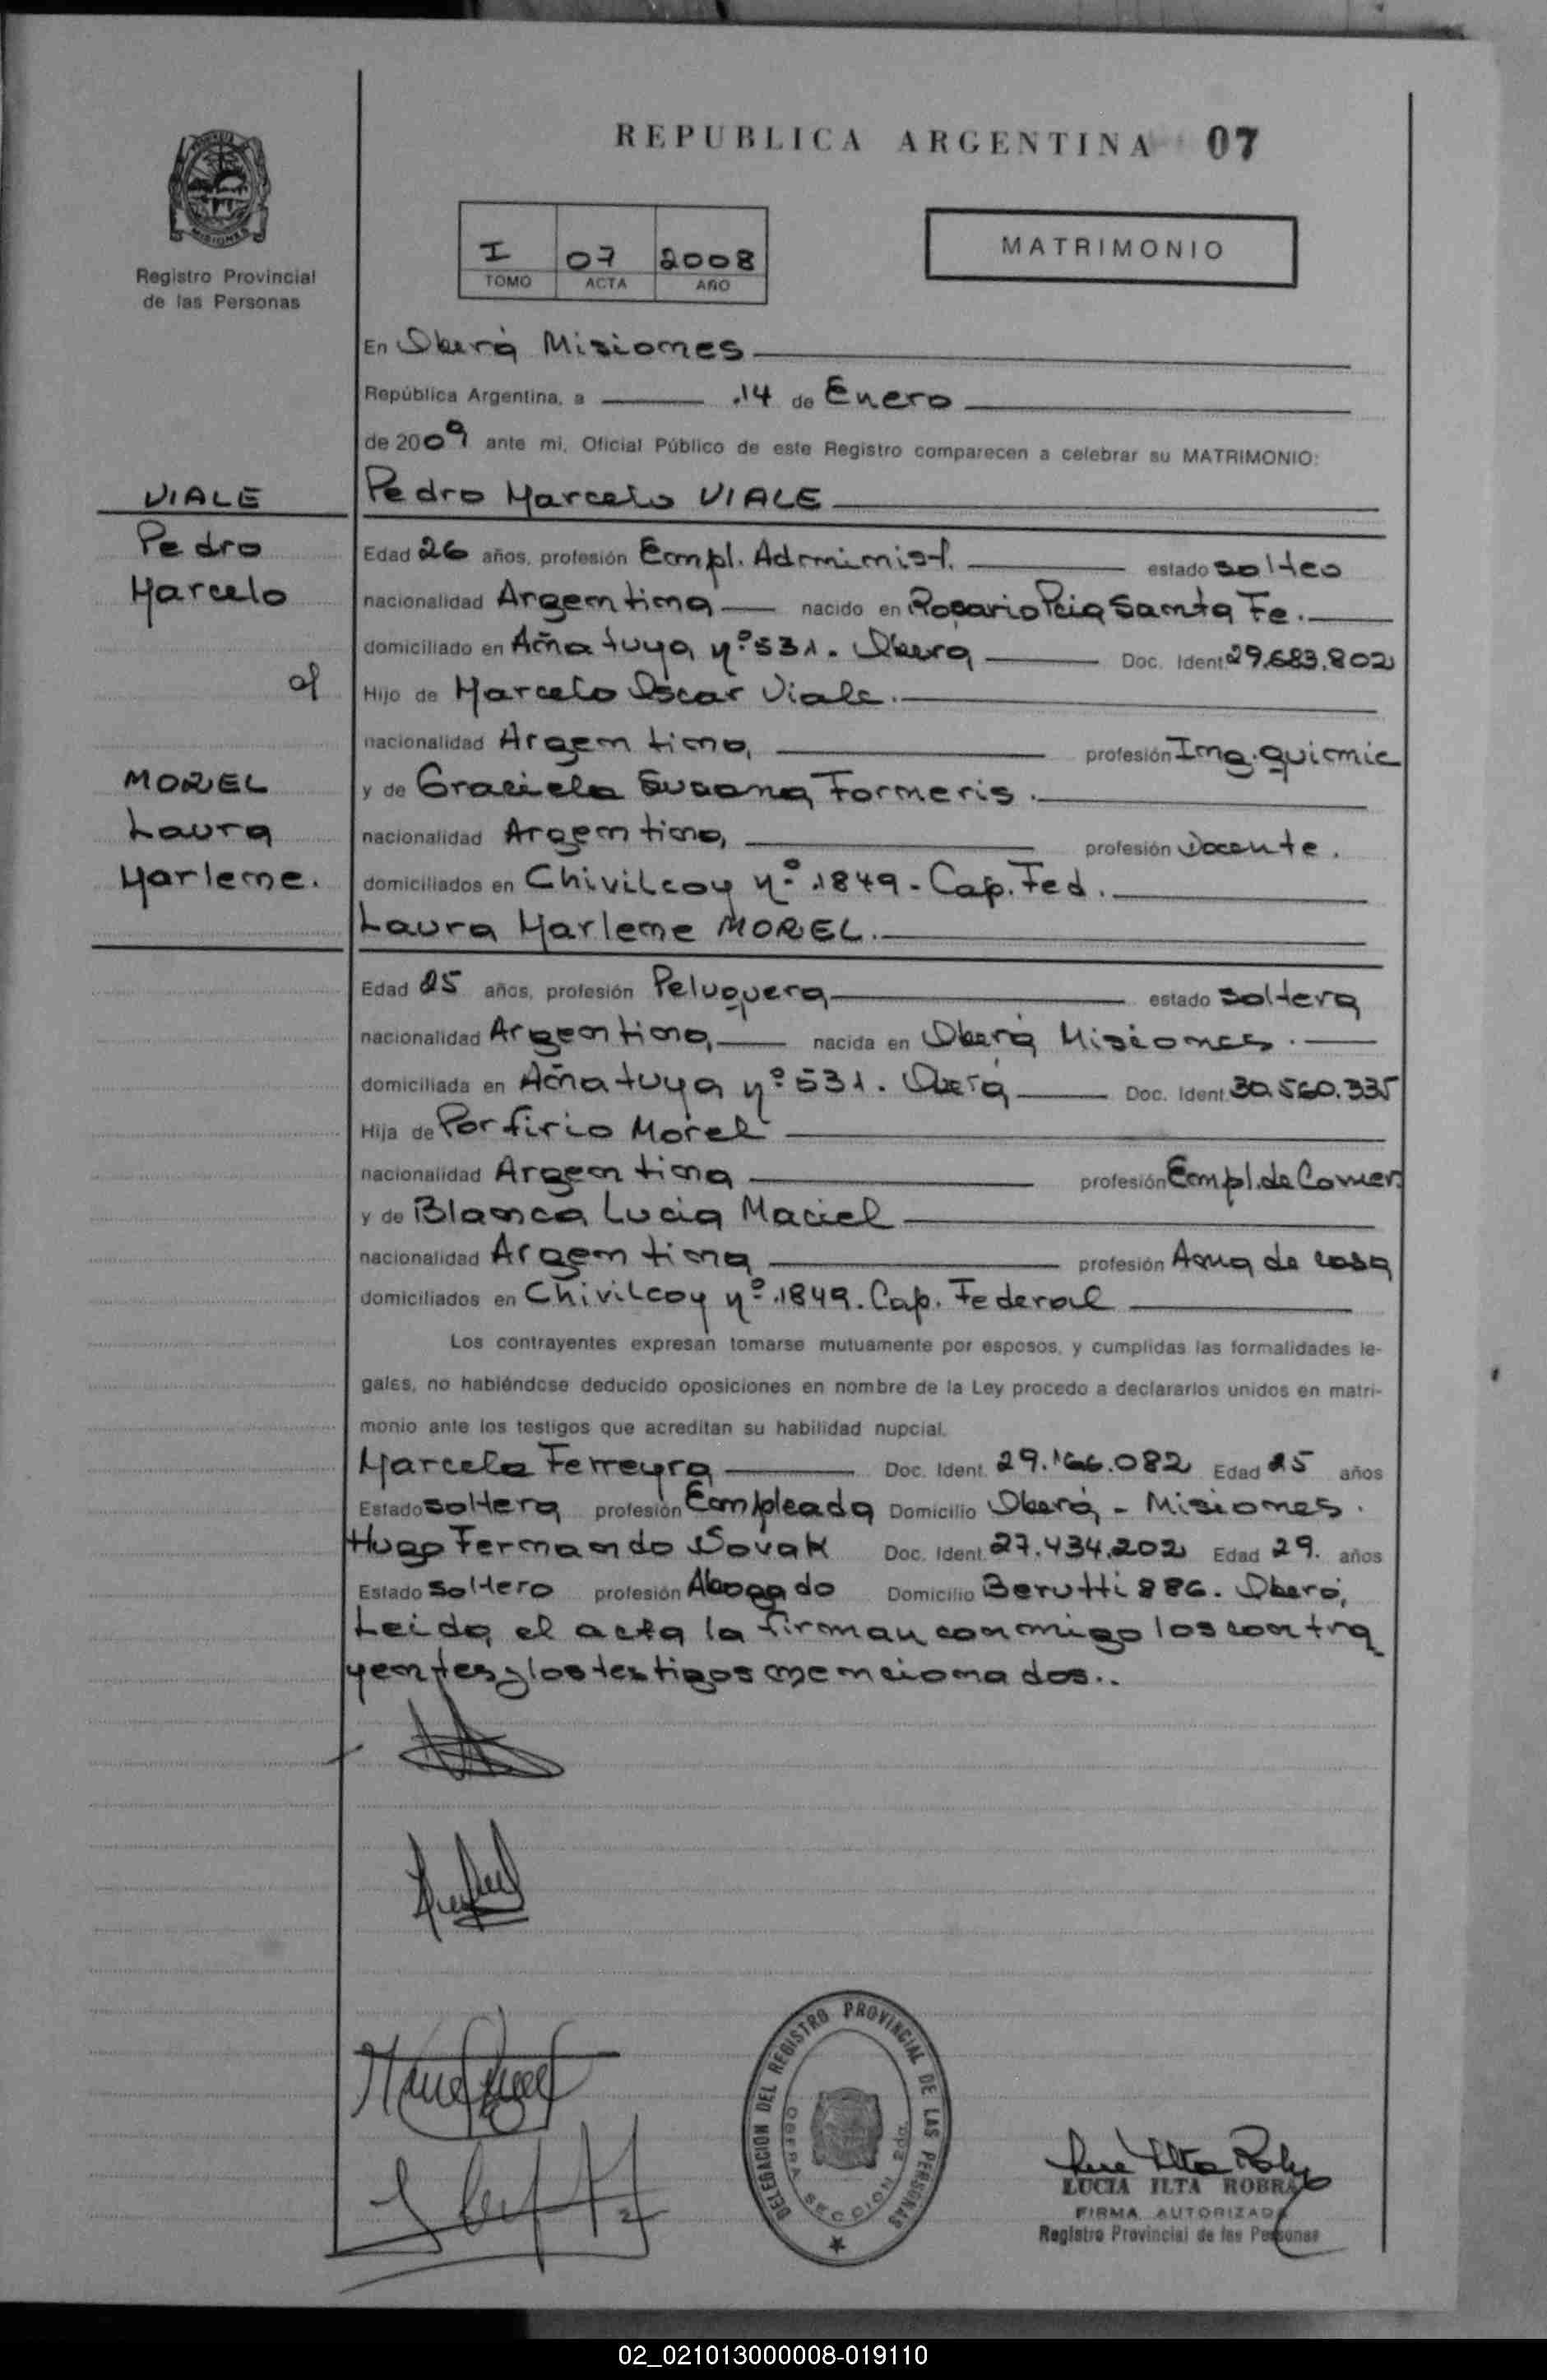 REPUBLICA ARGENTINA 07
MISIONES
Registro Provincial
de las Personas
I 07 2008
TOMO ACTA AÑO
MATRIMONIO
En Oberá Misiones
República Argentina, a 14 de Enero
de 2009 ante mi, Oficial Público de este Registro comparecen a celebrar su MATRIMONIO:
VIALE
Pedro
Marcelo
MOREL
Laura
Marlene.
Pedro Marcelo VIALE
Edad 26 años, profesión Empl. Administ. estado solteo
nacionalidad Argentina nacido en Rosario Pcia Santa Fe.
domiciliado en Añatuya nº 531. Oberá Doc. Ident. 29.683.802
Hijo de Marcelo Oscar Viale.
nacionalidad Argentina, profesión Ing. quimic
y de Graciela Susana Forneris.
nacionalidad Argentina, profesión Docente.
domiciliados en Chivilcoy nº 1849 - Cap. Fed.
Laura Marlene MOREL.
Edad 25 años, profesión Peluquera estado soltera
nacionalidad Argentina, nacida en Oberá Misiones.
domiciliada en Añatuya nº 531. Oberá Doc. Ident. 30.560.335
Hija de Porfirio Morel
nacionalidad Argentina profesión Empl. de Comer.
y de Blanca Lucia Maciel
nacionalidad Argentina profesión Ama de casa
domiciliados en Chivilcoy nº 1849. Cap. Federal
Los contrayentes expresan tomarse mutuamente por esposos, y cumplidas las formalidades le-
gales, no habiéndose deducido oposiciones en nombre de la Ley procedo a declararlos unidos en matri-
monio ante los testigos que acreditan su habilidad nupcial.
Marcela Ferreyra Doc. Ident. 29.166.082 Edad 25 años
Estado soltera profesión Empleada Domicilio Oberá - Misiones.
Hugo Fernando Novak Doc. Ident. 27.434.202 Edad 29. años
Estado soltero profesión Abogado Domicilio Berutti 886. Oberá,
Leida el acta la firman conmigo los contra
yentes y los testigos mencionados..
DELEGACION DEL REGISTRO PROVINCIAL DE LAS PERSONAS
OBERA SECCION 2da.
LUCIA ILTA ROBRA
FIRMA AUTORIZADA
Registro Provincial de las Personas
02_021013000008-019110